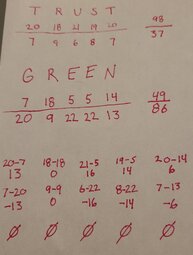 T R U S T
20 18 21 19 20 98
7 9 6 8 7 37
G R E E N
7 18 5 5 14 49
20 9 22 22 13 86
20-7 18-18 21-5 19-5 20-14
13 0 16 14 6
7-20 9-9 6-22 8-22 7-13
-13 0 -16 -14 -6
Ø Ø Ø Ø Ø